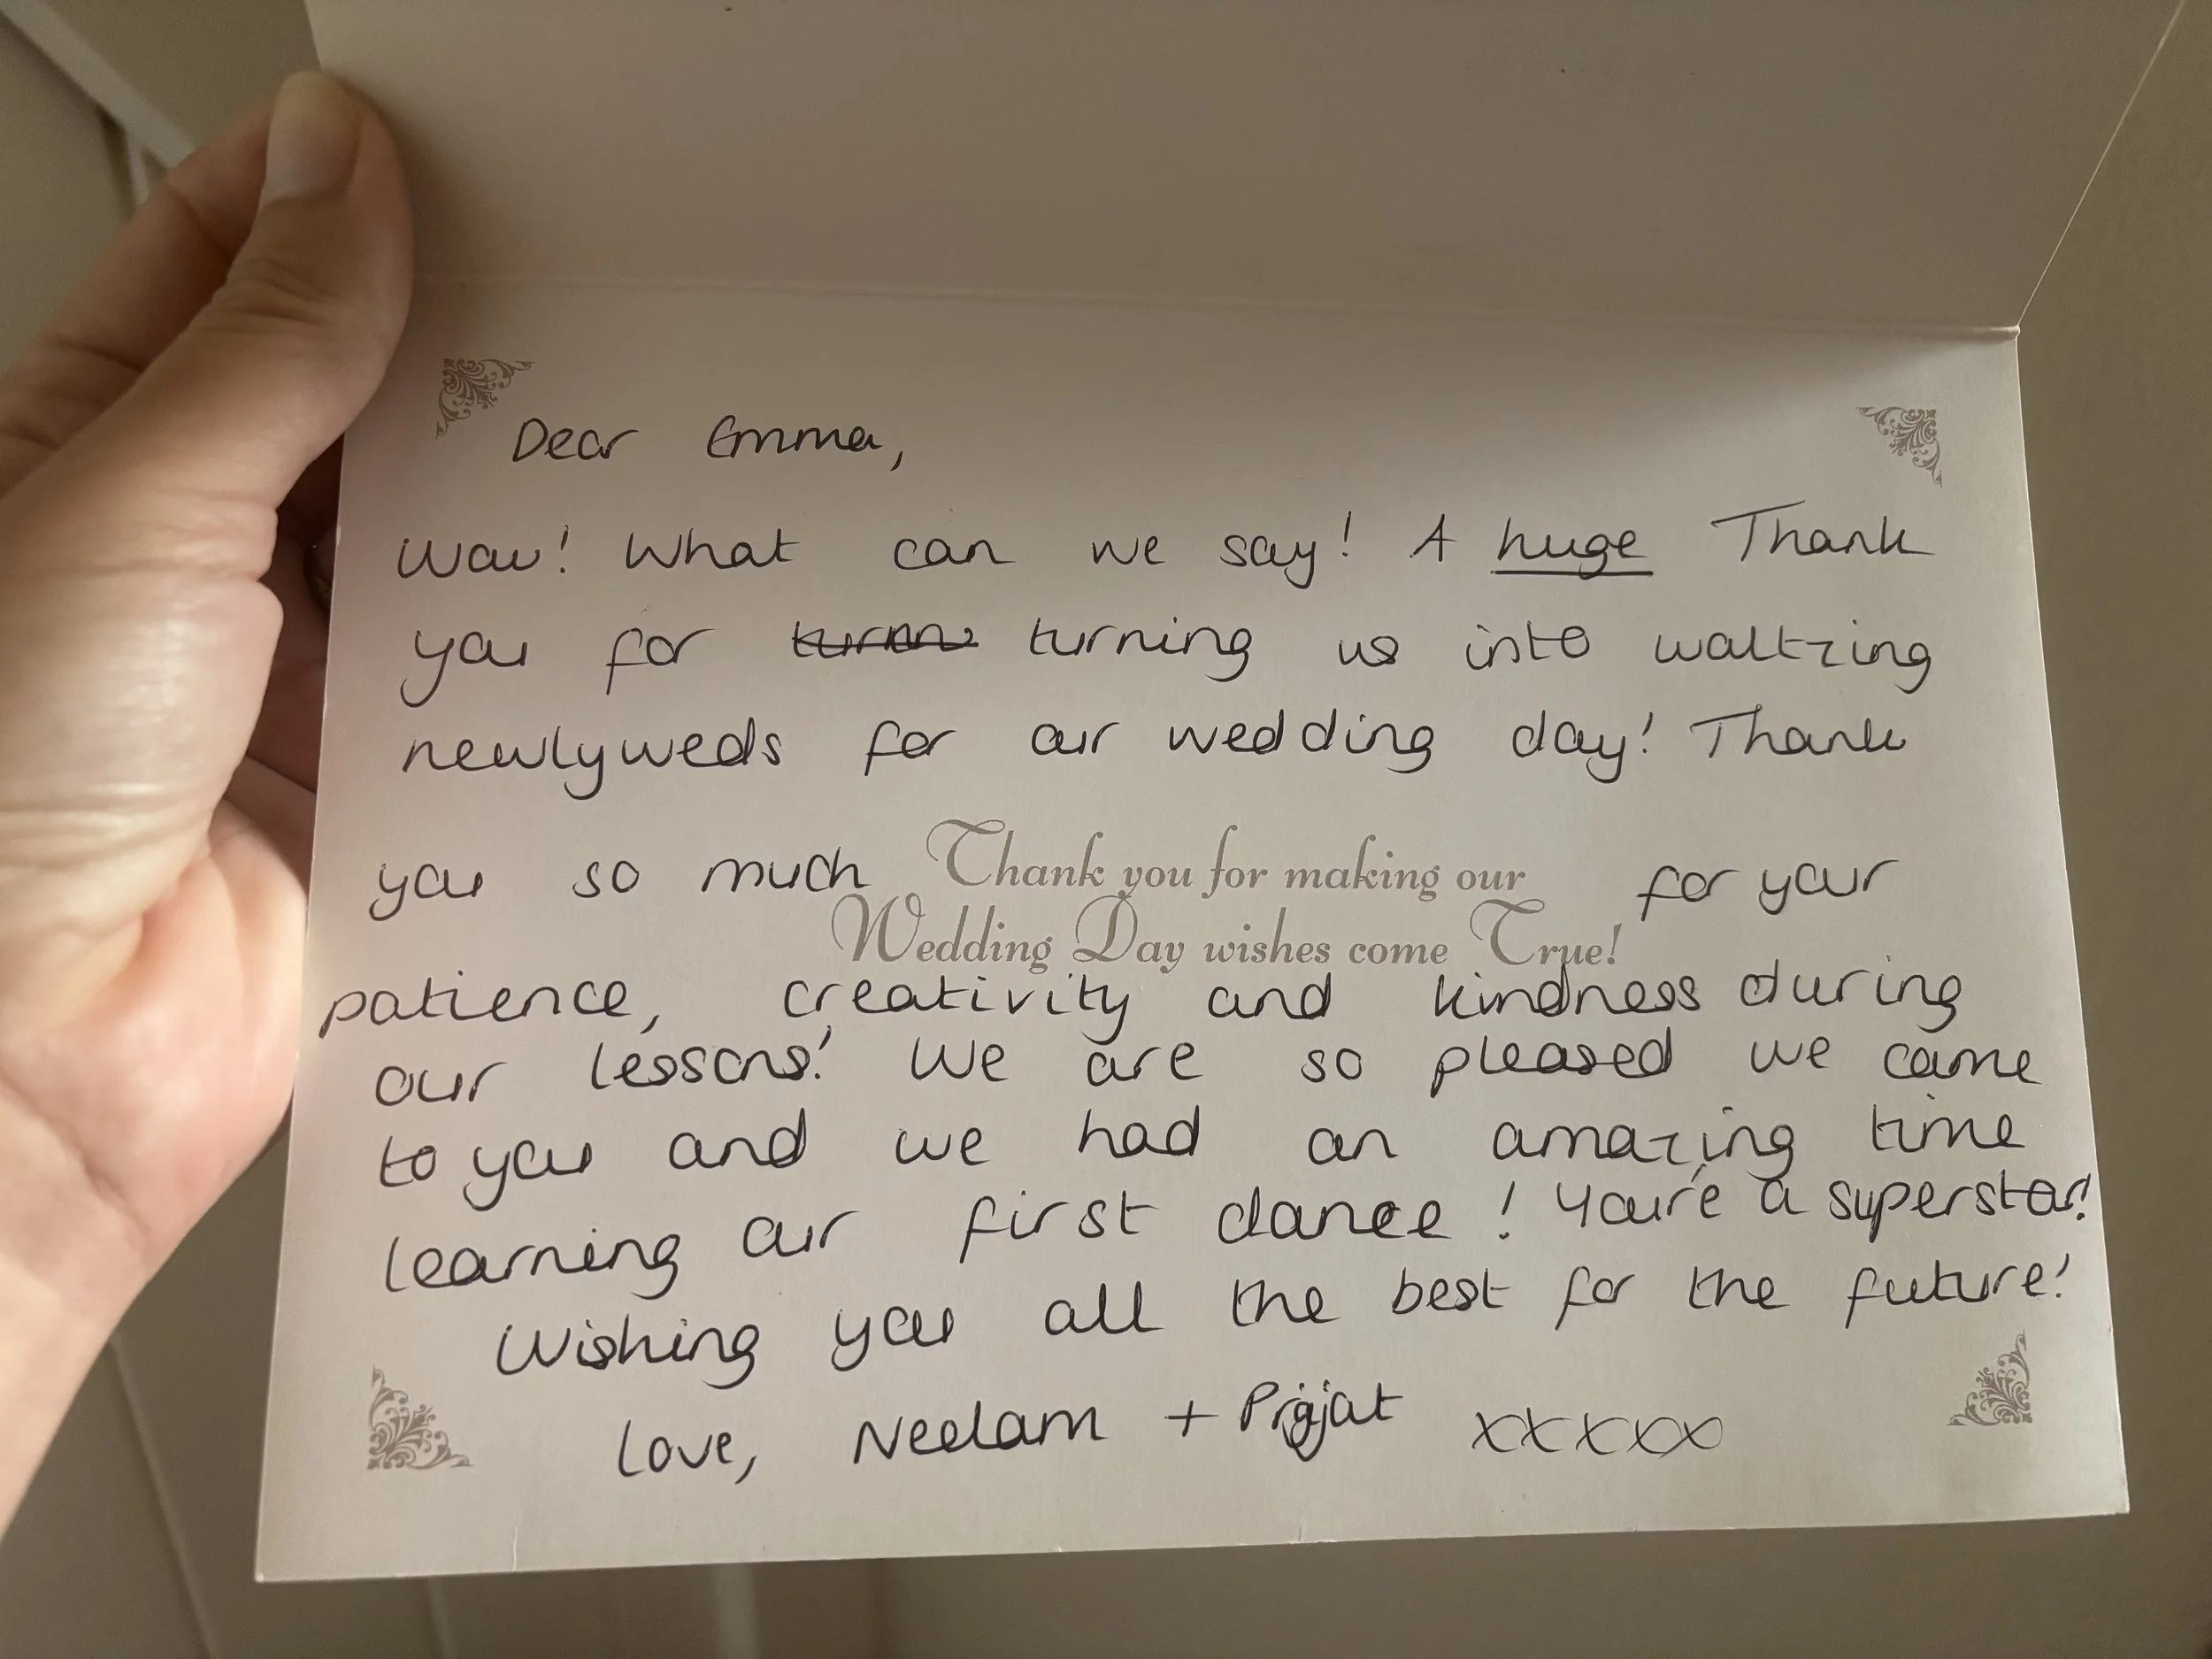 Dear Emma,
Wow! What can we say! A huge Thank
you for turning us into waltzing
newlyweds for our wedding day! Thank
you so much for your
Thank you for making our
Wedding Day wishes come True!
patience, creativity and kindness during
our lessons! We are so pleased we came
to you and we had an amazing time
learning our first dance! You're a superstar!
Wishing you all the best for the future!
Love, Neelam + xxxxx